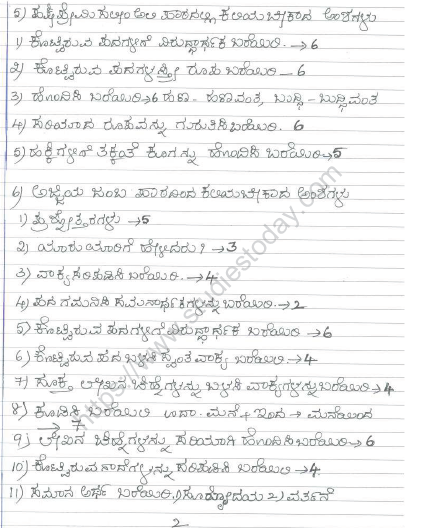 5) ಪಕ್ಷಿಪ್ರೇಮಿ ಸಲೀಂ ಅಲಿ ಪಾಠದಲ್ಲಿ ಕಲಿಯಬೇಕಾದ ಅಂಶಗಳು
1) ಕೊಟ್ಟಿರುವ ಪದಗಳಿಗೆ ವಿರುದ್ಧಾರ್ಥಕ ಬರೆಯಿರಿ. →6
2) ಕೊಟ್ಟಿರುವ ಪದಗಳ ಸ್ತ್ರೀ ರೂಪ ಬರೆಯಿರಿ – 6
3) ಹೊಂದಿಸಿ ಬರೆಯಿರಿ→6 ಹಣ - ಹಣವಂತ, ಬುದ್ಧಿ - ಬುದ್ಧಿವಂತ
4) ಸರಿಯಾದ ರೂಪವನ್ನು ಗುರುತಿಸಿ ಬರೆಯಿರಿ. 6
5) ಹಕ್ಕಿಗಳಿಗೆ ತಕ್ಕಂತೆ ಕೂಗನ್ನು ಹೊಂದಿಸಿ ಬರೆಯಿರಿ→5
6) ಅಜ್ಜಿಯ ಜಂಬ ಪಾಠದಿಂದ ಕಲಿಯಬೇಕಾದ ಅಂಶಗಳು
1) ಪ್ರಶ್ನೋತ್ತರಗಳು →5
2) ಯಾರು ಯಾರಿಗೆ ಹೇಳಿದರು? →3
3) ವಾಕ್ಯ ಸರಿಪಡಿಸಿ ಬರೆಯಿರಿ. →4
4) ಪದ ಗಮನಿಸಿ ಸಮನಾರ್ಥಕಗಳನ್ನು ಬರೆಯಿರಿ.→2
5) ಕೊಟ್ಟಿರುವ ಪದಗಳಿಗೆ ವಿರುದ್ಧಾರ್ಥಕ ಬರೆಯಿರಿ →6
6) ಕೊಟ್ಟಿರುವ ಪದ ಬಳಸಿ ಸ್ವಂತ ವಾಕ್ಯ ಬರೆಯಿರಿ →4
7) ಸೂಕ್ತ ಲೇಖನ ಚಿಹ್ನೆಗಳನ್ನು ಬಳಸಿ ವಾಕ್ಯಗಳನ್ನು ಬರೆಯಿರಿ →4
8) ಕೂಡಿಸಿ ಬರೆಯಿರಿ ಉದಾ. ಮನೆ + ಇಂದ → ಮನೆಯಿಂದ
→ 7
9) ಲೇಖನ ಚಿಹ್ನೆಗಳನ್ನು ಸರಿಯಾಗಿ ಹೊಂದಿಸಿ ಬರೆಯಿರಿ→6
10) ಕೊಟ್ಟಿರುವ ಗಾದೆಗಳನ್ನು ಸರಿಪಡಿಸಿ ಬರೆಯಿರಿ →4
11) ಸಮಾನ ಅರ್ಥ ಬರೆಯಿರಿ. 1) ಸೂರ್ಯೋದಯ 2) ವರ್ತನೆ
2
www.studiestoday.com